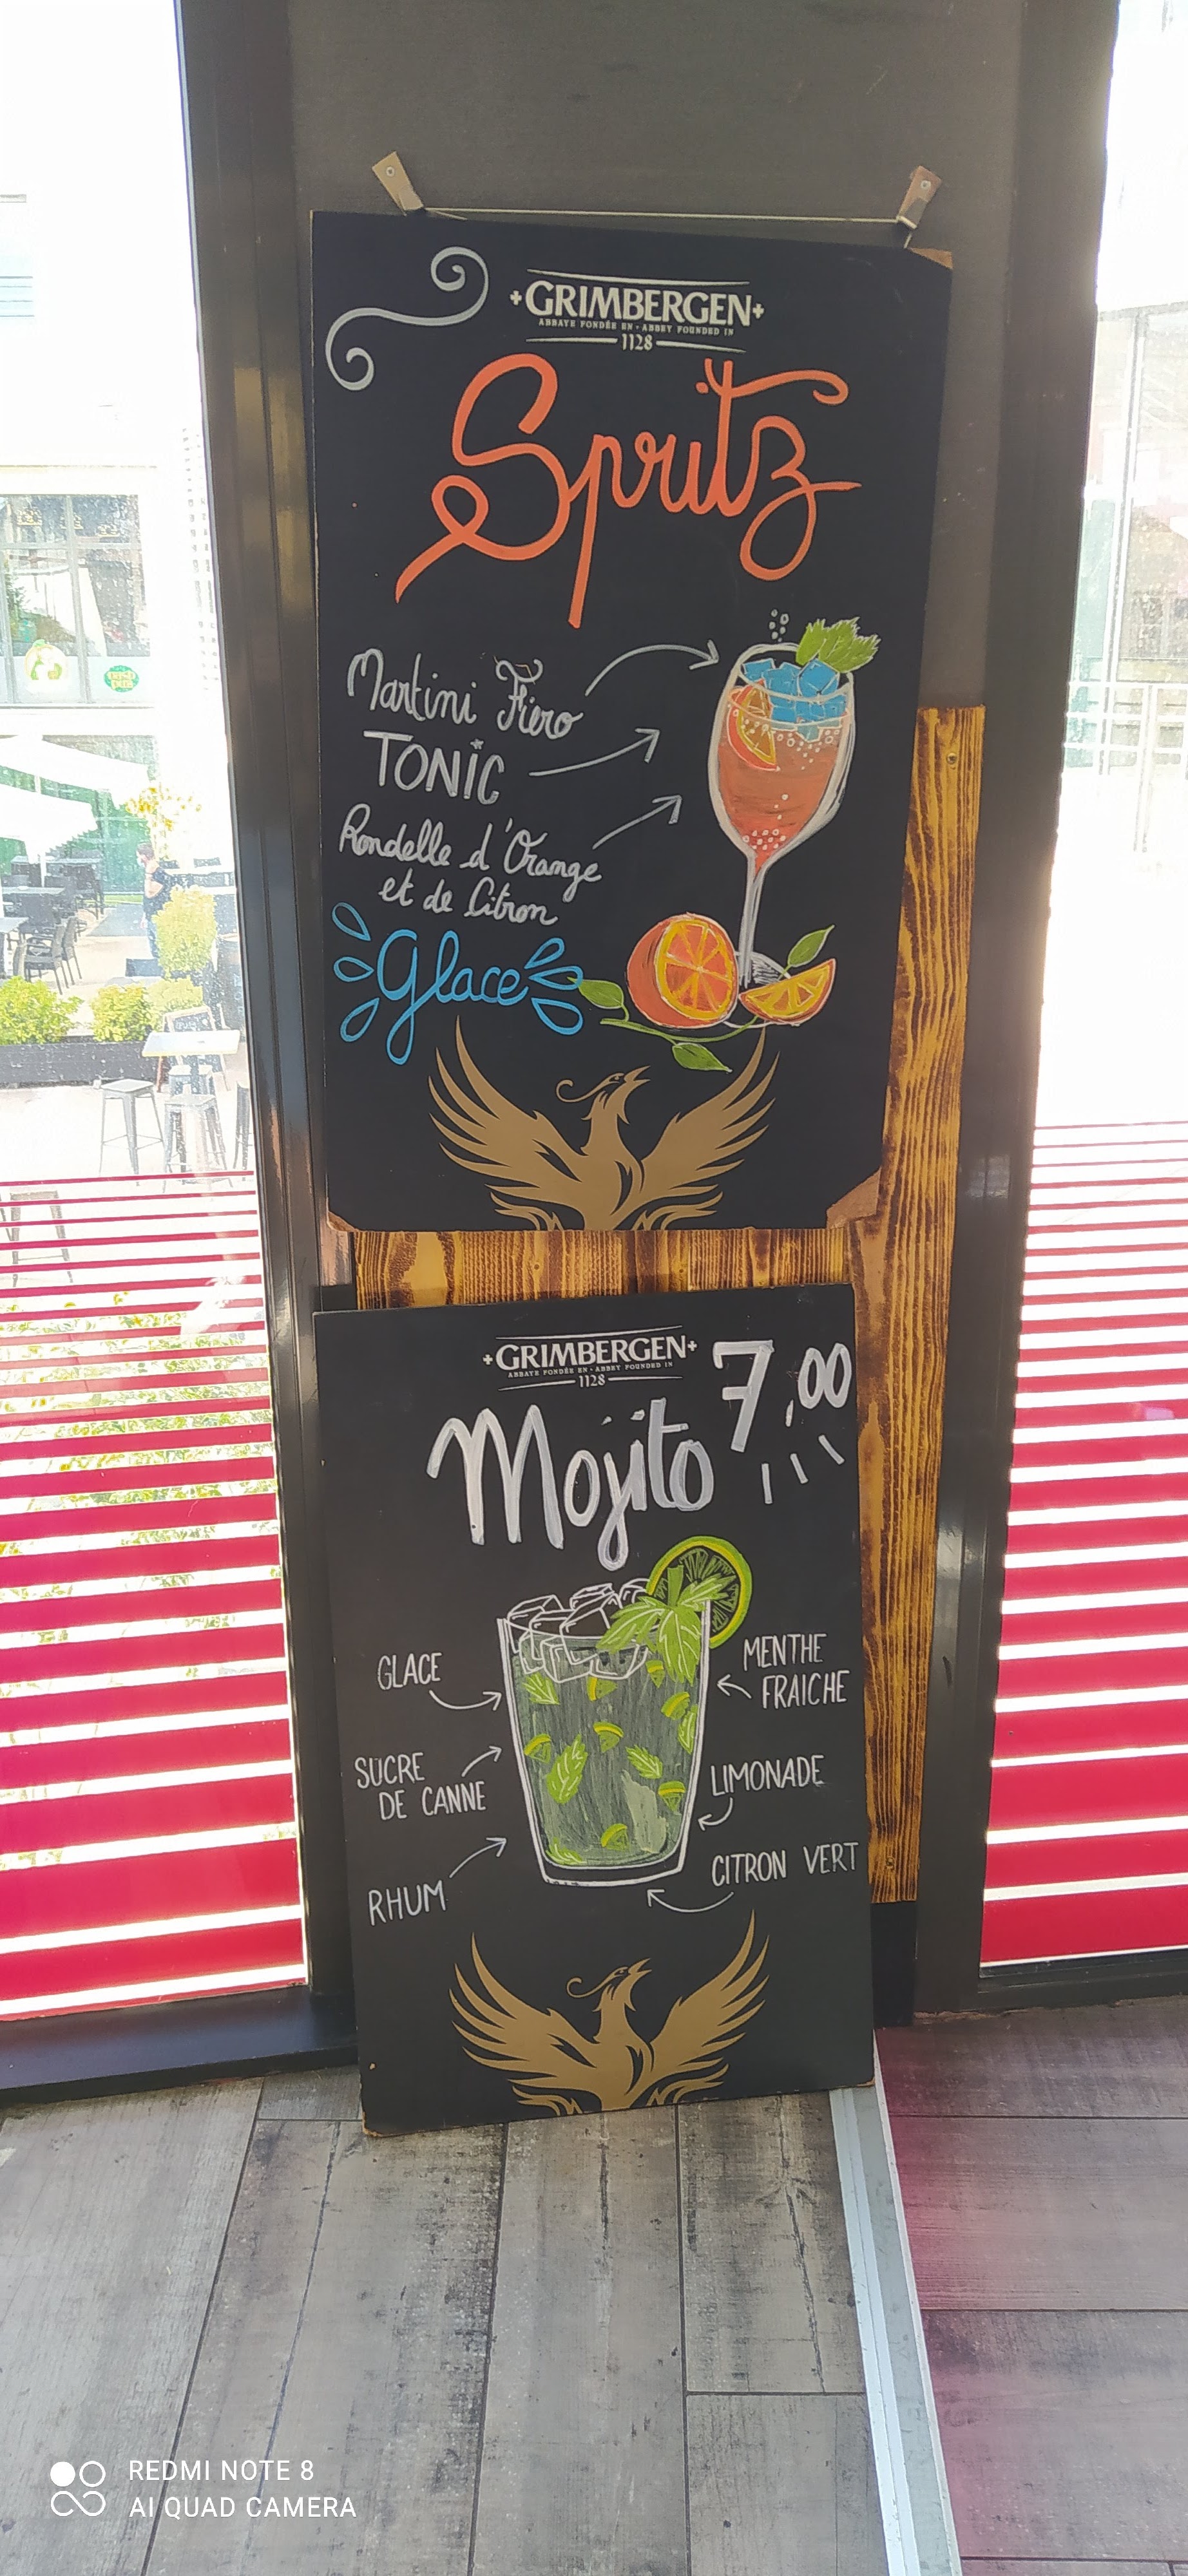 GRIMBERGEN
ABBAYE FONDÉE EN - ABBEY FOUNDED IN
1128
Spritz
Martini Fiero
TONIC
Rondelle d'Orange
et de Citron
Glace
GRIMBERGEN
ABBAYE FONDÉE EN - ABBEY FOUNDED IN
1128
7,00
Mojito
GLACE
MENTHE
FRAICHE
SUCRE
DE CANNE
LIMONADE
RHUM
CITRON VERT
REDMI NOTE 8
AI QUAD CAMERA